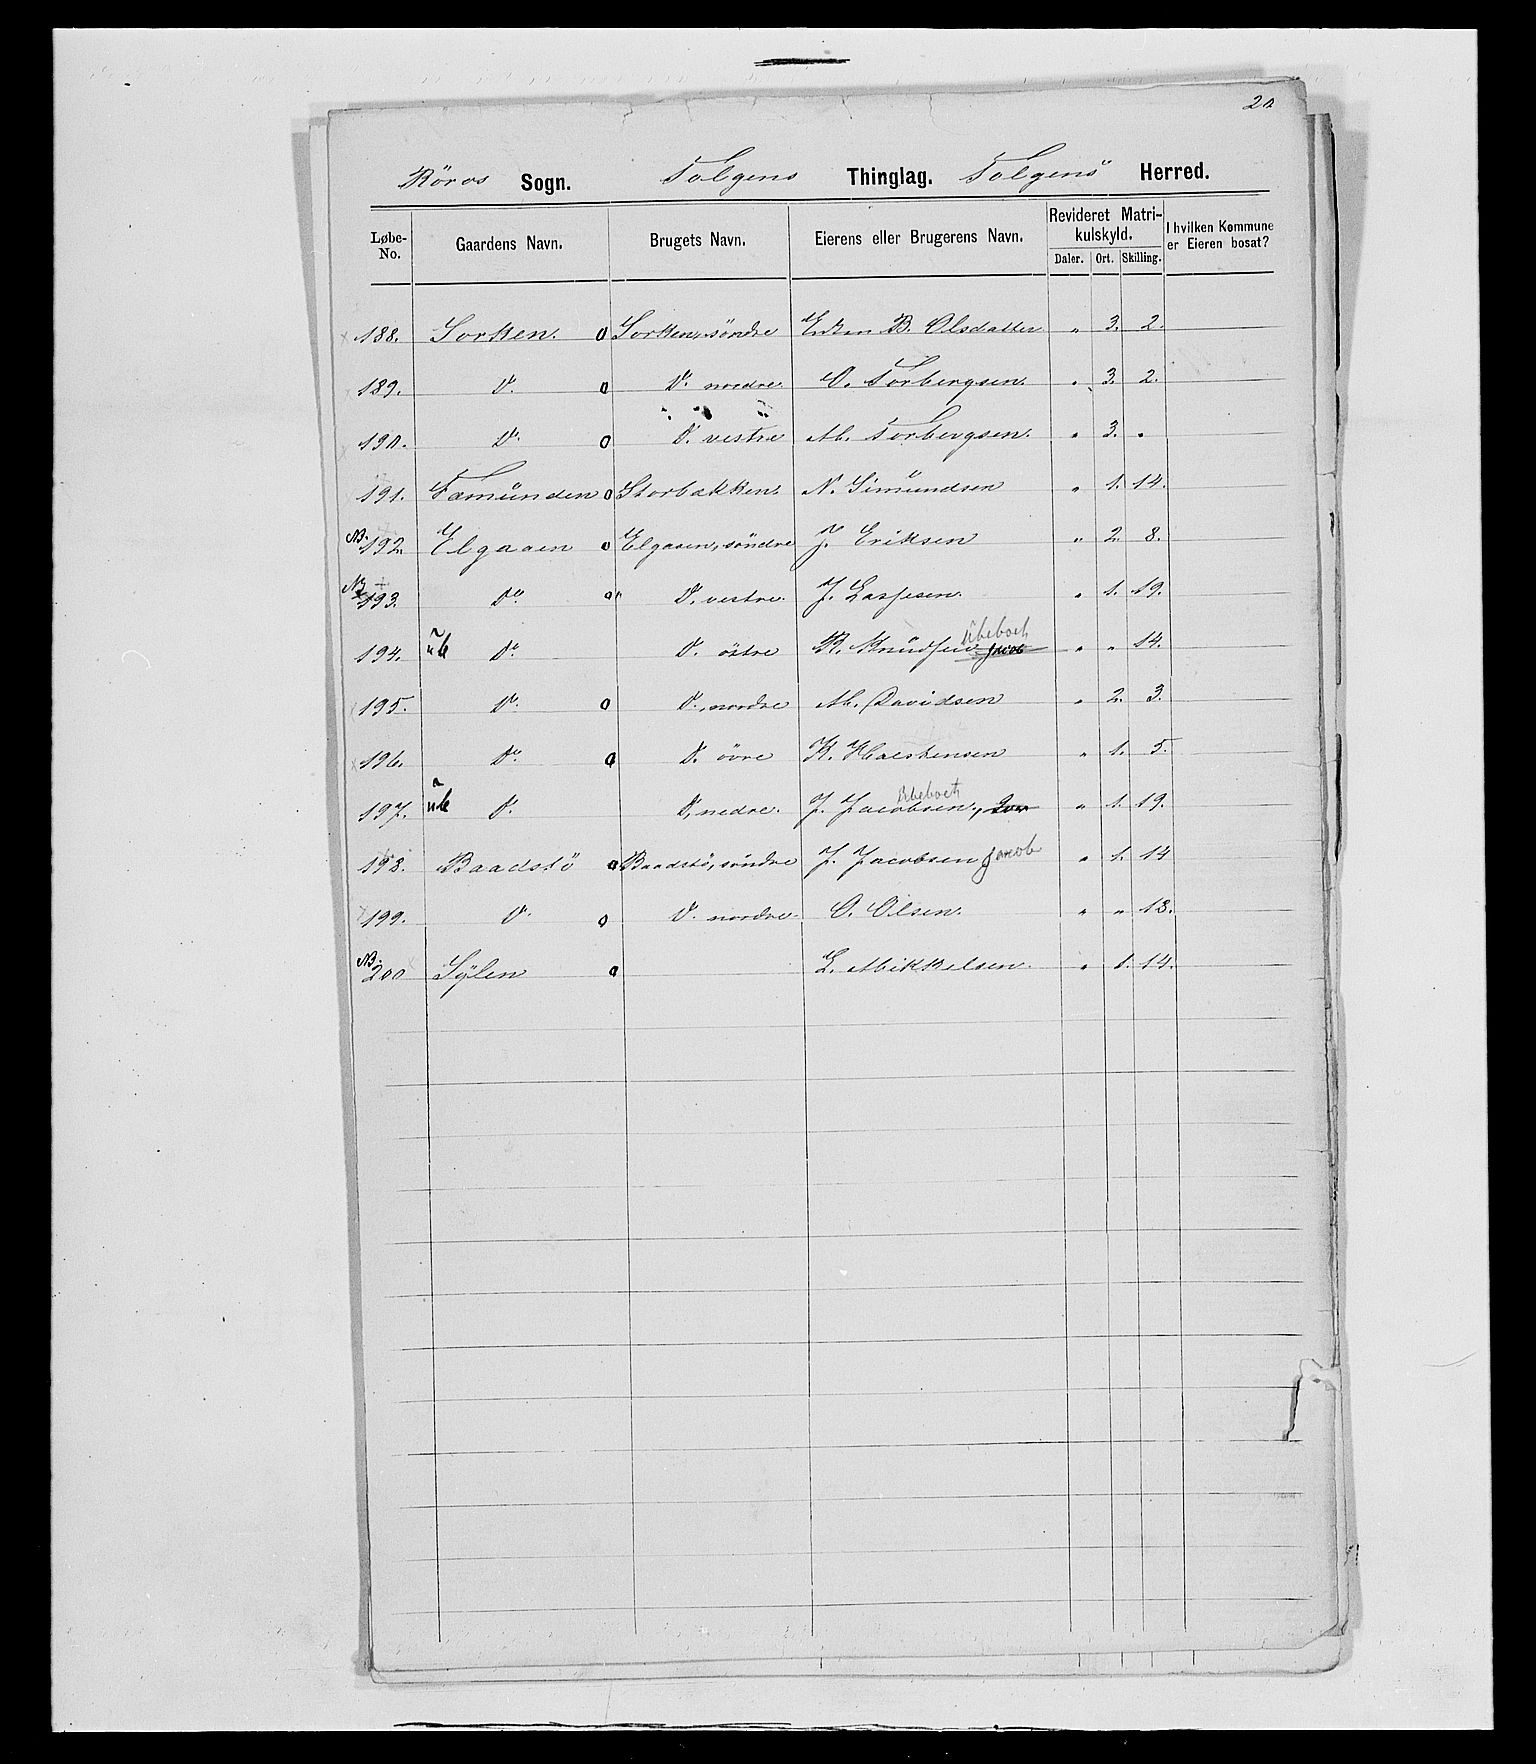 20
Röros Sogn. Tolgens Thinglag. Tolgens Herred.
Løbe-No. Gaardens Navn. Brugets Navn. Eierens eller Brugerens Navn. Revideret Matrikulskyld. I hvilken Kommune er Eieren bosat?
Daler. Ort. Skilling.
188. Sorken. o Sorken, söndre Enken B. Olsdatter " 3. 2.
189. Do. o Do. nordre. O. Torbergsen. " 3. 2.
190. Do. o Do. vestre M. Torbergsen. " 3. "
191. Fæmunden o Storbakken. N. Simundsen " 1. 14.
NB. 192. Elgaaen o Elgaaen, söndre J. Eriksen " 2. 8.
NB 193. Do. o" Do. vestre. J. Lassesen. " 1. 19.
194. ub Do. Do. östre K. Knudsen Ubeboet Jacob " " 14.
195. Do. o Do. nordre M. Davidsen " 2. 3.
196. Do. o Do. övre K. Haestensen " 1. 5.
197. ub Do. Do. nedre. J. Jacobsen, Ubeboet " 1. 19.
198. Baadstö o Baadstö, söndre J. Jacobsen Jacob " 1. 14
199. Do. o Do. nordre. O. Olsen. " " 13.
NB. 200 Sylen o E. Mikkelsen. " 1. 14.